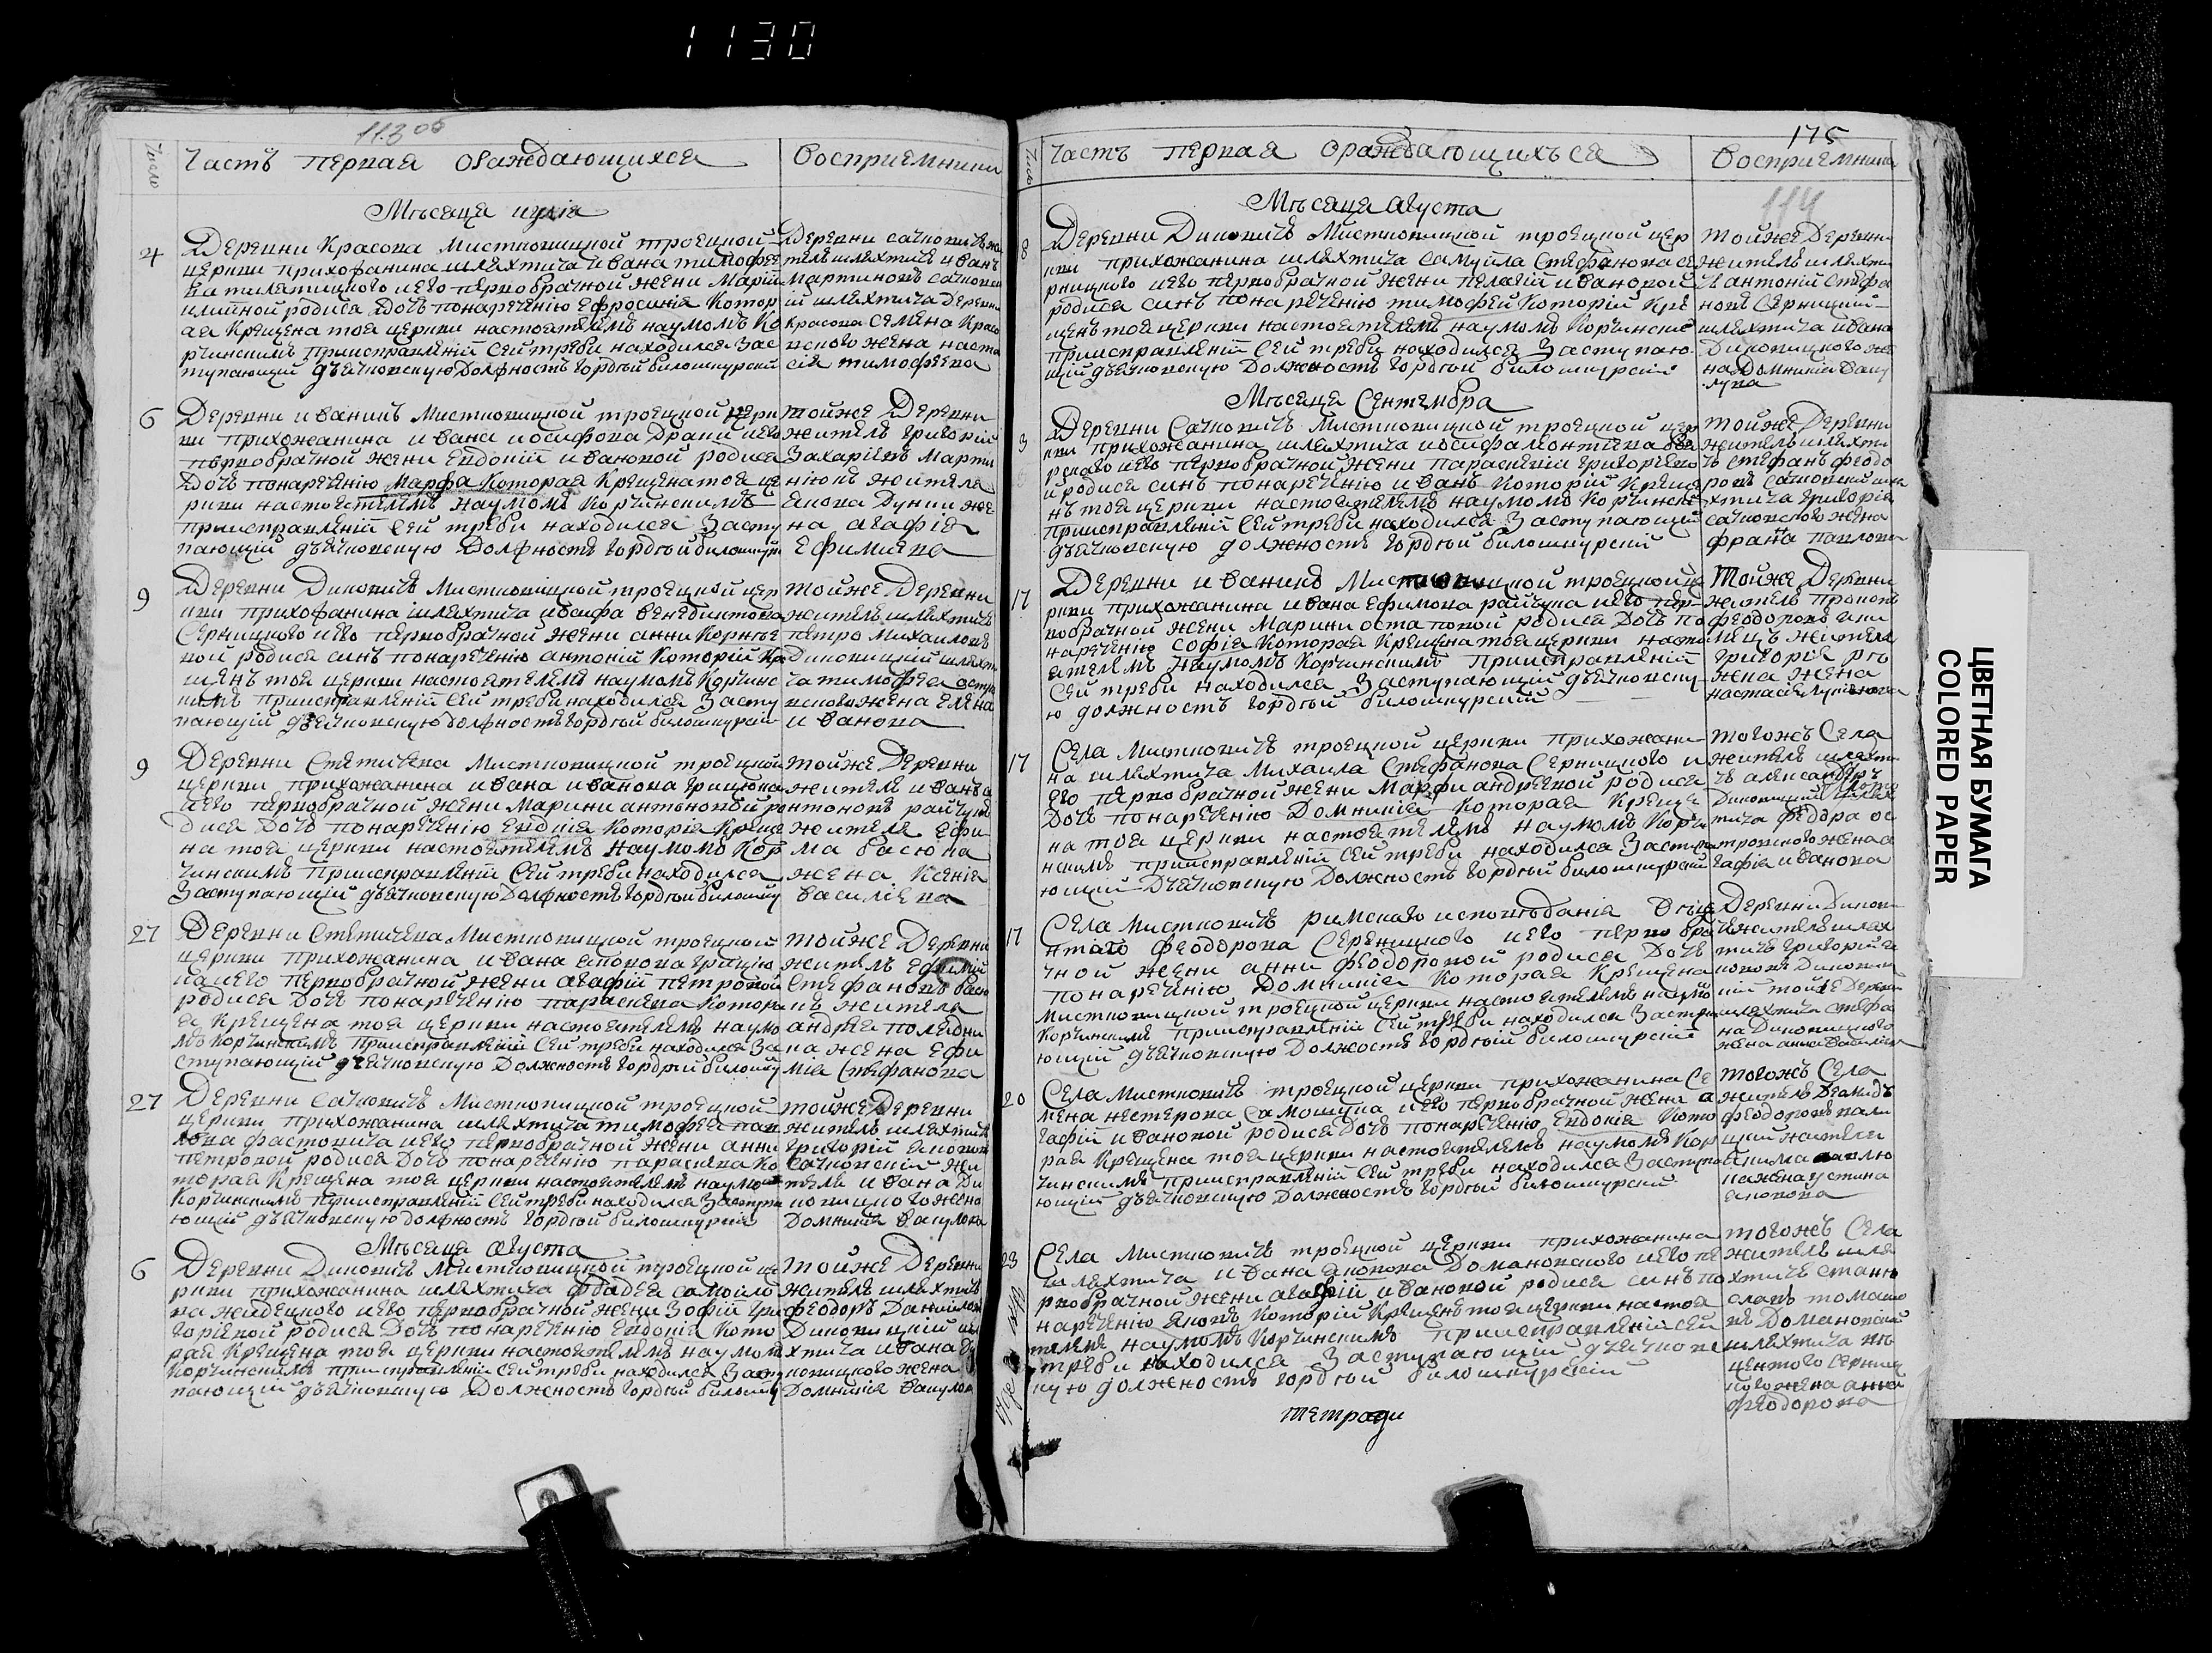 1130
11306
Число
Часть первая ораждающихся
Восприемники
Мѣсяца иулія
4
Деревни Красова Мистковицкой троецкой
церкви прихожанина шляхтича ивана тимофее
ва тилятицкого иего первобрачной жени Маріи
илииной родися дочь понареченію Ефросинія Котор
ая Крещена тоя церкви настоятелемъ наумомъ Ко
рчинскимъ приисправленіи сеи треби находился Зас
тупающій дьячковскую Должность гордѣй билошкурскій
Деревни сачковичъ жи
тель шляхтичъ иванъ
Мартиновъ сачковск
ій шляхтича Деревни
Красова Семена Красо
вского жена наста
сія тимофеева
6
Деревни иваникъ Мистковицкой троецкой церк
ви прихожанина ивана иосифова Драки иего
первобрачной жени Евдокіи ивановой родися
Дочь понареченію Марфа Которая Крещена тоя це
ркви настоятелемъ наумомъ Корчинскимъ
приисправленіи сеи треби находился Засту
пающій дьячковскую Должность гордѣй билошкурс
тойже Деревни
житель григорій
Захаріевъ Марти
нюкъ жителя
якова Дунки же
на агафія
Ефимиева
9
Деревни Диковичъ Мистковицкой троецкой цер
кви прихожанина шляхтича иосифа венедиктова
Серницкого иего первобрачной жени анни Корнѣе
вой родися синъ понареченію антоній Которій Кре
щенъ тоя церкви настоятелемъ наумомъ Корчинс
кимъ приисправленіи сеи треби находился Засту
пающій дьячковскую должность гордѣй билошкурскій
тойже Деревни
житель шляхтичъ
петро Михаиловъ
Диковицкій шляхти
ча тимофея остро
вского жена Елена
иванова
9
Деревни Стетичева Мистковицкой троецкой
церкви прихожанина ивана иванова грицюка
иего первобрачной жени Марини антоновой ро
дися Дочь понареченію Евдокія Которія Креще
на тоя церкви настоятелемъ наумомъ Кор
чинскимъ приисправленіи сеи треби находился
Заступающій дьячковскую Должность гордѣй билошку
тойже Деревни
житель иванъ а
нтоновъ райчукъ
жителя Ефи
ма басюка
жена Ксенія
василіева
27
Деревни Стетичева Мистковицкой троецкой
церкви прихожанина ивана якопова грицю
ка иего первобрачной жени агафіи петровой
родися Дочь понареченію параскева Котора
я Крещена тоя церкви настоятелемъ наумо
мъ Корчинскимъ приисправленіи сеи треби находился За
ступающій дьячковскую Должность гордѣй билошку
тойже Деревни
житель Ефимій
Стефановъ басю
къ жителя
андрея полядни
ка жена Ефи
мія Стефанова
27
Деревни сачковичъ Мистковицкой троецкой
церкви прихожанина шляхтича тимофея пав
лова фастовича иего первобрачной жени анни
петровой родися Дочь понареченію параскева Ко
торая Крещена тоя церкви настоятелемъ наумом
Корчинскимъ приисправленіи сеи треби находился Заступа
ющій дьячковскую должность гордѣй билошкурскій
тойже Деревни
житель шляхтичъ
григорій яковов
сачковскій жи
теля ивана Ди
ковицкого жена
Домникія вакулова
Мѣсяца августа
6
Деревни Диковичъ Мистковицкой троецкой це
ркви прихожанина шляхтича фадея самоило
ва жидецкого иего первобрачной жени Зофіи гри
горіевой родися Дочь понареченію Евдокія Кото
рая Крещена тоя церкви настоятелемъ наумом
Корчинскимъ приисправленіи сеи треби находился Засту
пающій дьячковскую Должность гордѣй билошку
тойже Деревни
житель шляхтичъ
феодоръ Даниловъ
Диковицкій шля
хтича ивана Ди
ковицкого жена
Домникія вакулов
175
Число
Часть первая ораждающихъся
Восприемники
114
Мѣсяца августа
8
Деревни Диковичъ Мистковицкой троецкой цер
кви прихожанина шляхтича самуила Стефанова се
рницкого иего первобрачной жени пелагіи ивановой
родися синъ понареченію тимофей Которій Кре
щенъ тоя церкви настоятелемъ наумомъ Корчинским
приисправленіи сеи треби находился Заступаю
щій дьячковскую Должность гордѣй билошкурскій
тойже Деревни
житель шляхти
чъ антоній Стефа
новъ Серницкій
шляхтича ивана
Диковицкого же
на Домникія ваку
лова
Мѣсяца Сентембра
3
Деревни Сачковичъ Мистковицкой троецкой цер
кви прихожанина шляхтича иосифа леонтиева
рского иего первобрачной жени параскевіи григорево
й родися синъ понареченію иванъ Которій Креще
нъ тоя церкви настоятелемъ наумомъ Корчинским
приисправленіи сеи треби находился Заступающій
дьячковскую должность гордѣй билошкурскій
тойже Деревни
житель шляхти
чъ стефанъ феодо
ровъ сачковскій шля
хтича григорія
сачковского жена
франка павлова
17
Деревни иваникъ Мистковицкой троецкой це
ркви прихожанина ивана Ефимова райчука иего пер
вобрачной жени Марини остаповой родися Дочь по
нареченію софія Которая Крещена тоя церкви насто
ятелемъ наумомъ Корчинскимъ приисправленіи
сеи треби находился Заступающій дьячковску
ю должность гордѣй билошкурскій
тойже Деревни
житель прокопъ
феодоровъ
жителя
григорія
жена
настасія
17
Села Мистковичъ троецкой церкви прихожани
на шляхтича Михаила Стефанова Серницкого и
его первобрачной жени Марфи андреевой родися
Дочь понареченію Домникія Которая Креще
на тоя церкви настоятелемъ наумомъ Корчи
нскимъ приисправленіи сеи треби находился Заступа
ющій дьячковскую Должность гордѣй билошкурскій
тогожъ Села
житель шляхти
чъ александръ
Диковицкій шлях
тича федора ос
тровского жена а
гафія иванова
17
Села Мистковичъ римскаго исповѣданія
нтого феодорова Серницкого иего первобра
чной жени анни феодоровой родися Дочь
понареченію Домникія Которая Крещена
Мистковицкой троецкой церкви настоятелемъ наумо
Корчинскимъ приисправленіи сеи треби находился Заступа
ющій дьячковскую Должность гордѣй билошкурскій
Деревни Дикови
чъ житель шлях
тичъ григорій я
кововъ Диковиц
кій тойже Деревни
шляхтича стефа
на Диковицкого
жена анна василіева
20
Села Мистковичъ троецкой церкви прихожанина Се
мена нестерова самошука иего первобрачной жени а
гафіи ивановой родися Дочь понареченію Евдокія Кото
рая Крещена тоя церкви настоятелемъ наумомъ Кор
чинскимъ приисправленіи сеи треби находился Заступа
ющій дьячковскую Должность гордѣй билошкурскій
тогожъ Села
житель Демидъ
феодоровъ
жителя
якима павлю
ка жена устина
якопова
23
Села Мистковичъ троецкой церкви прихожанина
шляхтича ивана якопова Домановского иего пе
рвобрачной жени агафіи ивановой родися синъ по
нареченію яковъ Которій Крещенъ тоя церкви настоя
телемъ наумомъ Корчинскимъ приисправленіи сеи
треби находился Заступающій дьячковс
кую должность гордѣй билошкурскій
тогожъ Села
житель шля
хтичъ стани
славъ томашо
въ Домановскій
шляхтича ви
центого серниц
кого жена анна
феодорова
тетради
ЦВЕТНАЯ БУМАГА
COLORED PAPER